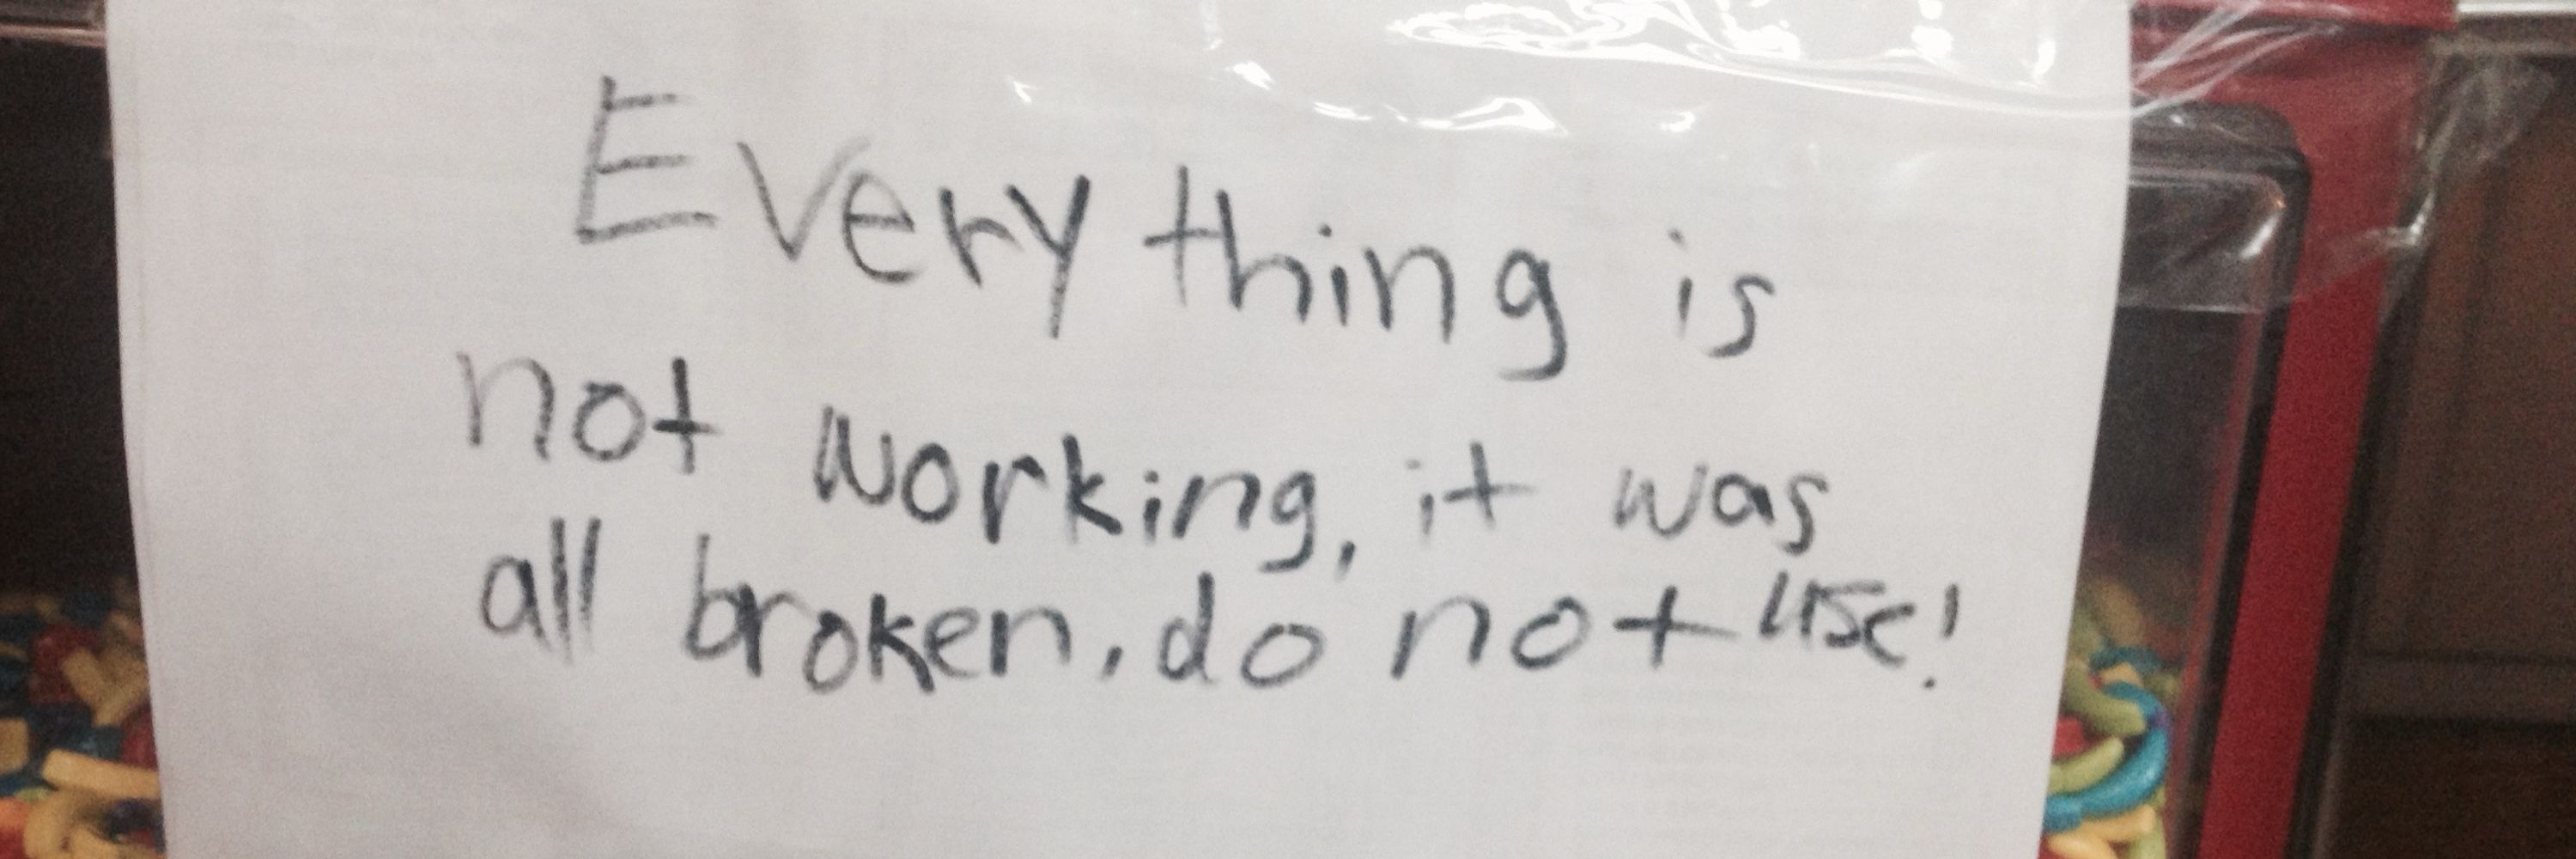 Every thing is
not working, it was
all broken, do not use!